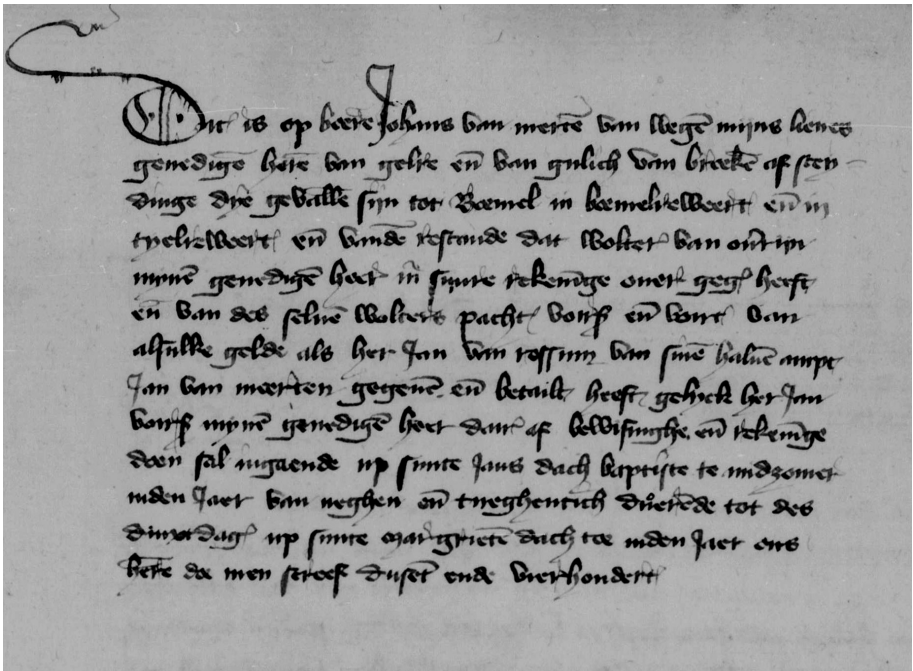 Dit is op boere Johans van mertē van wegē mijns lieues
genedigē herē van gelre eñ van gulich van breekē af sten
dinge dye gevallē sijn tot Boemel in boemelreweert eñ in
tyelreweert eñ vandē restande dat wolter van oūrijn
mynē genedigē heer in sijnre rekenīge ouer gegē heeft
eñ van des seluē wolters pacht vors eñ vort van
alsulke gelde als her Jan van rossum van sinē haluē ampt
Jan van meerten gegeuē eñ betailt heeft gelyck her Jan
vors mynē genedigē heer dair af bewisinghe eñ rekenīge
doen sal ingaende up sunte Jans dach baptiste te midzomer
inden Jaer van neghen eñ tneghentich duerēde tot des
dinxdag up sunte margrietē dach toe inden Jaer ons
herē doe men screef dusēt ende vierhondert